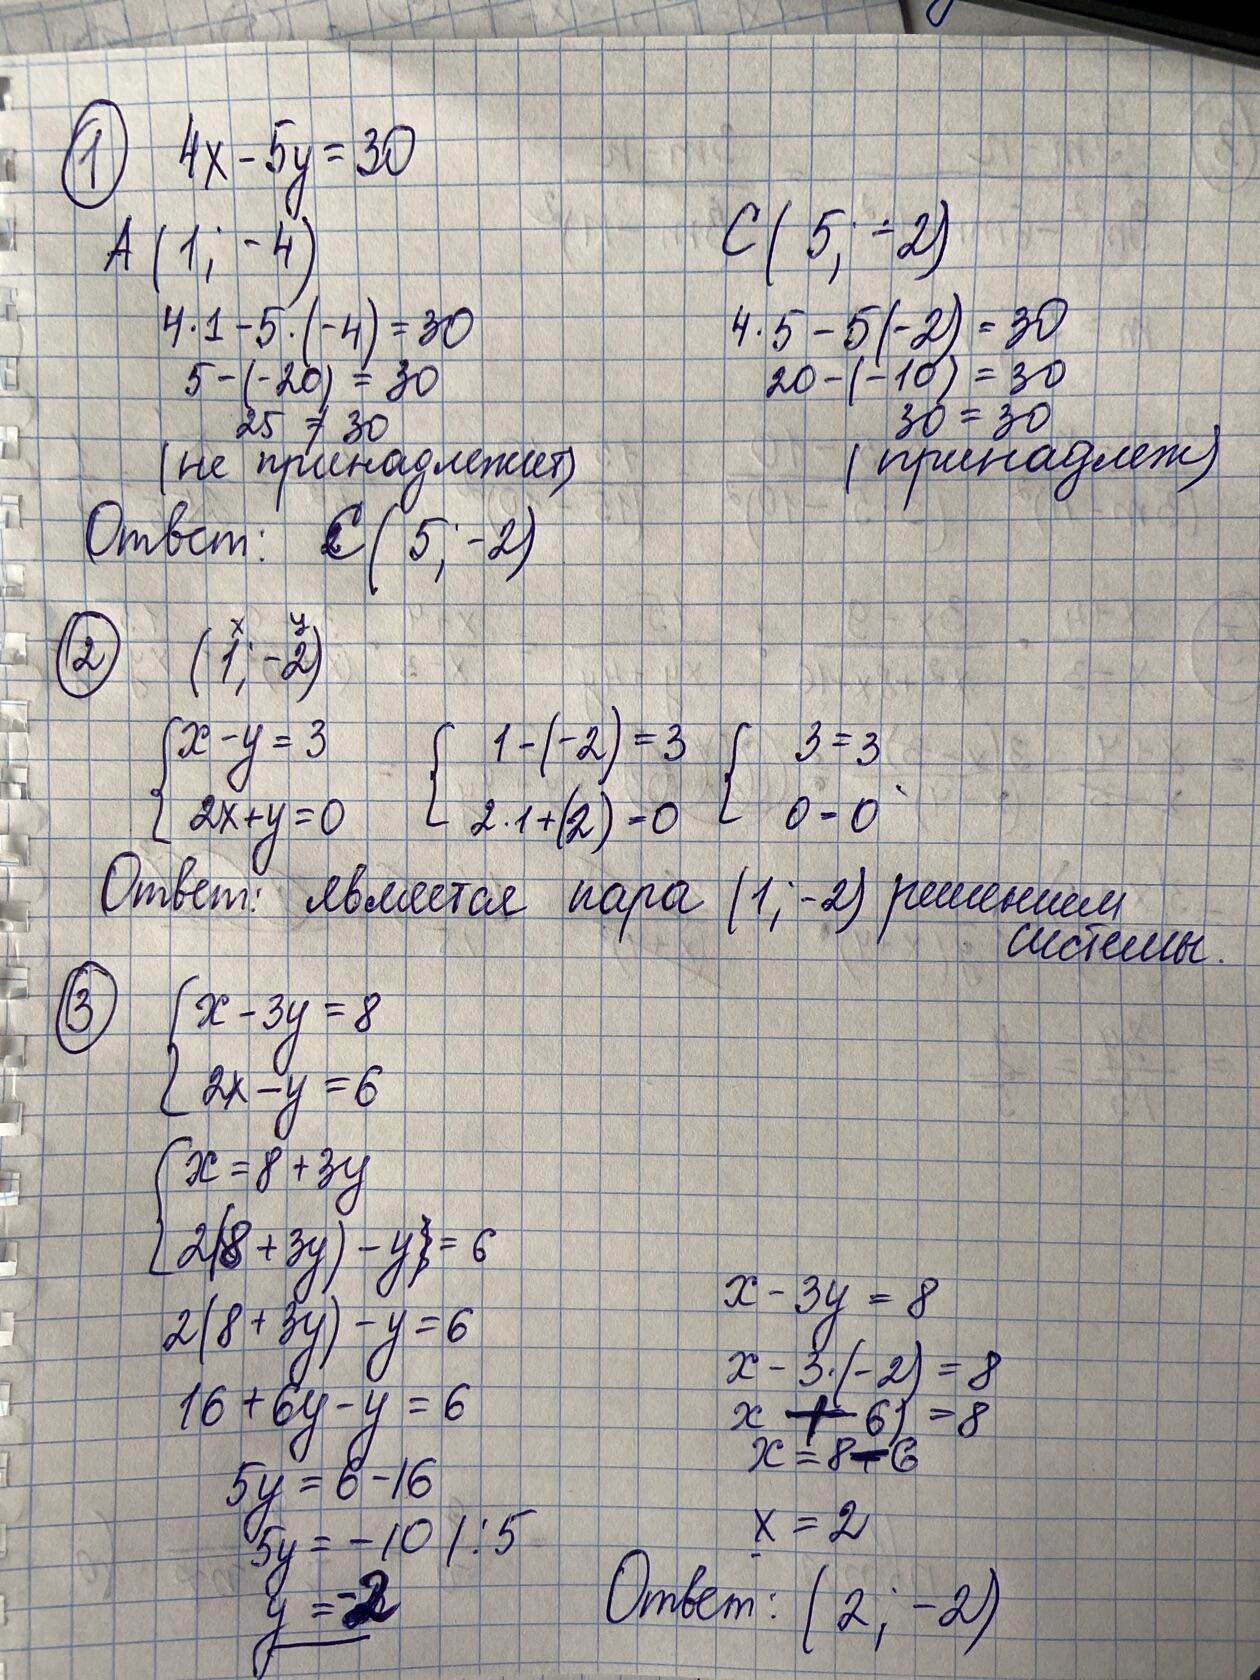 1 4x - 5y = 30
A (1; -4)
4·1 - 5·(-4) = 30
5 - (-20) = 30
25 ≠ 30
(не принадлежит)
C (5; -2)
4·5 - 5(-2) = 30
20 - (-10) = 30
30 = 30
(принадлеж)
Ответ: C (5; -2)
2 (1; -2)
x y
{ x - y = 3
2x + y = 0
{ 1 - (-2) = 3
2·1 + (2) = 0
{ 3 = 3
0 = 0
Ответ: является пара (1; -2) решением
системы.
3 { x - 3y = 8
2x - y = 6
{ x = 8 + 3y
2(8 + 3y) - y = 6
2(8 + 3y) - y = 6
16 + 6y - y = 6
5y = 6 - 16
5y = -10 | : 5
y = -2
x - 3y = 8
x - 3·(-2) = 8
x + 6) = 8
x = 8 - 6
x = 2
Ответ: (2; -2)